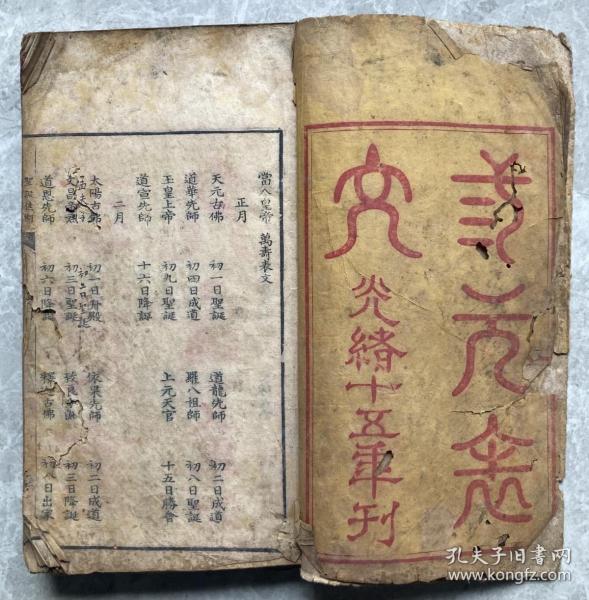 元
文
光緒十五年刊
當今皇帝 萬壽表文
正月
天元古佛 初一日聖誕 道龍先師 初二日成道
道華先師 初四日成道 羅八祖師 初八日聖誕
玉皇上帝 初九日聖誕 上元天官 十五日勝會
道宣先師 十六日降誕
二月
太陽古佛 初一日升殿 初二日成道
孟夫子 初二日聖誕
文昌帝君 初三日聖誕 初三日降誕
道恩先師 初六日降誕 釋迦古佛 初八日出家
孔夫子旧书网
www.kongfz.com